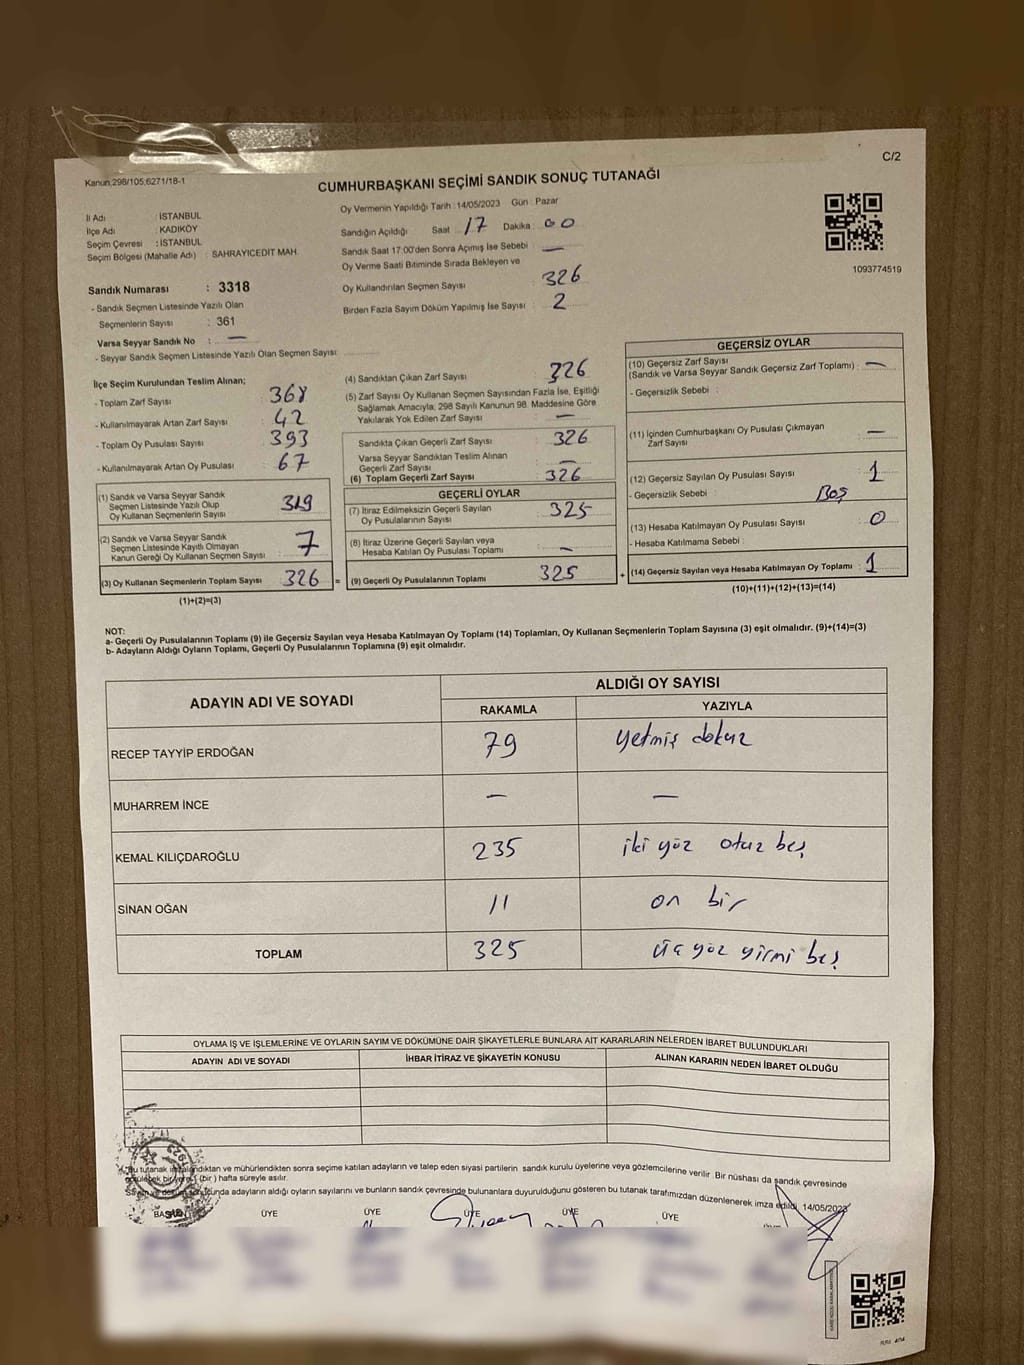 C/2
Kanun,298/105;6271/18-1
CUMHURBAŞKANI SEÇİMİ SANDIK SONUÇ TUTANAĞI
İl Adı : İSTANBUL
İlçe Adı : KADIKÖY
Seçim Çevresi : İSTANBUL
Seçim Bölgesi (Mahalle Adı) : SAHRAYICEDİT MAH
Sandık Numarası : 3318
- Sandık Seçmen Listesinde Yazılı Olan
Seçmenlerin Sayısı : 361
Varsa Seyyar Sandık No : —
- Seyyar Sandık Seçmen Listesinde Yazılı Olan Seçmen Sayısı
Oy Vermenin Yapıldığı Tarih :14/05/2023 Gün : Pazar
Sandığın Açıldığı Saat 17 Dakika : 00
Sandık Saat 17:00'den Sonra Açılmış İse Sebebi : —
Oy Verme Saati Bitiminde Sırada Bekleyen ve
Oy Kullandırılan Seçmen Sayısı : 326
Birden Fazla Sayım Döküm Yapılmış İse Sayısı : 2
1093774519
İlçe Seçim Kurulundan Teslim Alınan;
- Toplam Zarf Sayısı : 368
- Kullanılmayarak Artan Zarf Sayısı : 42
- Toplam Oy Pusulası Sayısı : 393
- Kullanılmayarak Artan Oy Pusulası : 67
(1) Sandık ve Varsa Seyyar Sandık
Seçmen Listesinde Yazılı Olup
Oy Kullanan Seçmenlerin Sayısı : 319
(2) Sandık ve Varsa Seyyar Sandık
Seçmen Listesinde Kayıtlı Olmayan
Kanun Gereği Oy Kullanan Seçmen Sayısı : 7
(3) Oy Kullanan Seçmenlerin Toplam Sayısı : 326 =
(1)+(2)=(3)
(4) Sandıktan Çıkan Zarf Sayısı : 326
(5) Zarf Sayısı Oy Kullanan Seçmen Sayısından Fazla İse, Eşitliği
Sağlamak Amacıyla; 298 Sayılı Kanunun 98. Maddesine Göre
Yakılarak Yok Edilen Zarf Sayısı : —
Sandıkta Çıkan Geçerli Zarf Sayısı : 326
Varsa Seyyar Sandıktan Teslim Alınan
Geçerli Zarf Sayısı : —
(6) Toplam Geçerli Zarf Sayısı : 326
GEÇERLİ OYLAR
(7) İtiraz Edilmeksizin Geçerli Sayılan
Oy Pusulalarının Sayısı : 325
(8) İtiraz Üzerine Geçerli Sayılan veya
Hesaba Katılan Oy Pusulası Toplamı : —
(9) Geçerli Oy Pusulalarının Toplamı : 325 +
GEÇERSİZ OYLAR
(10) Geçersiz Zarf Sayısı
(Sandık ve Varsa Seyyar Sandık Geçersiz Zarf Toplamı) : —
- Geçersizlik Sebebi :
(11) İçinden Cumhurbaşkanı Oy Pusulası Çıkmayan
Zarf Sayısı : —
(12) Geçersiz Sayılan Oy Pusulası Sayısı : 1
- Geçersizlik Sebebi : Boş
(13) Hesaba Katılmayan Oy Pusulası Sayısı : 0
- Hesaba Katılmama Sebebi :
(14) Geçersiz Sayılan veya Hesaba Katılmayan Oy Toplamı : 1
(10)+(11)+(12)+(13)=(14)
NOT:
a- Geçerli Oy Pusulalarının Toplamı (9) ile Geçersiz Sayılan veya Hesaba Katılmayan Oy Toplamı (14) Toplamları, Oy Kullanan Seçmenlerin Toplam Sayısına (3) eşit olmalıdır. (9)+(14)=(3)
b- Adayların Aldığı Oyların Toplamı, Geçerli Oy Pusulalarının Toplamına (9) eşit olmalıdır.
ADAYIN ADI VE SOYADI ALDIĞI OY SAYISI
RAKAMLA YAZIYLA
RECEP TAYYİP ERDOĞAN 79 yetmiş dokuz
MUHARREM İNCE — —
KEMAL KILIÇDAROĞLU 235 iki yüz otuz beş
SİNAN OĞAN 11 on bir
TOPLAM 325 üç yüz yirmi beş
OYLAMA İŞ VE İŞLEMLERİNE VE OYLARIN SAYIM VE DÖKÜMÜNE DAİR ŞİKAYETLERLE BUNLARA AİT KARARLARIN NELERDEN İBARET BULUNDUKLARI
ADAYIN ADI VE SOYADI İHBAR İTİRAZ VE ŞİKAYETİN KONUSU ALINAN KARARIN NEDEN İBARET OLDUĞU
Bu tutanak imzalandıktan ve mühürlendikten sonra seçime katılan adayların ve talep eden siyasi partilerin sandık kurulu üyelerine veya gözlemcilerine verilir. Bir nüshası da sandık çevresinde
görülebilek bir yere 1 (bir ) hafta süreyle asılır.
adayların aldığı oyların sayılarını ve bunların sandık çevresinde bulunanlara duyurulduğunu gösteren bu tutanak tarafımızdan düzenlenerek imza edildi. 14/05/2023
BAŞKAN ÜYE ÜYE ÜYE ÜYE ÜYE ÜYE